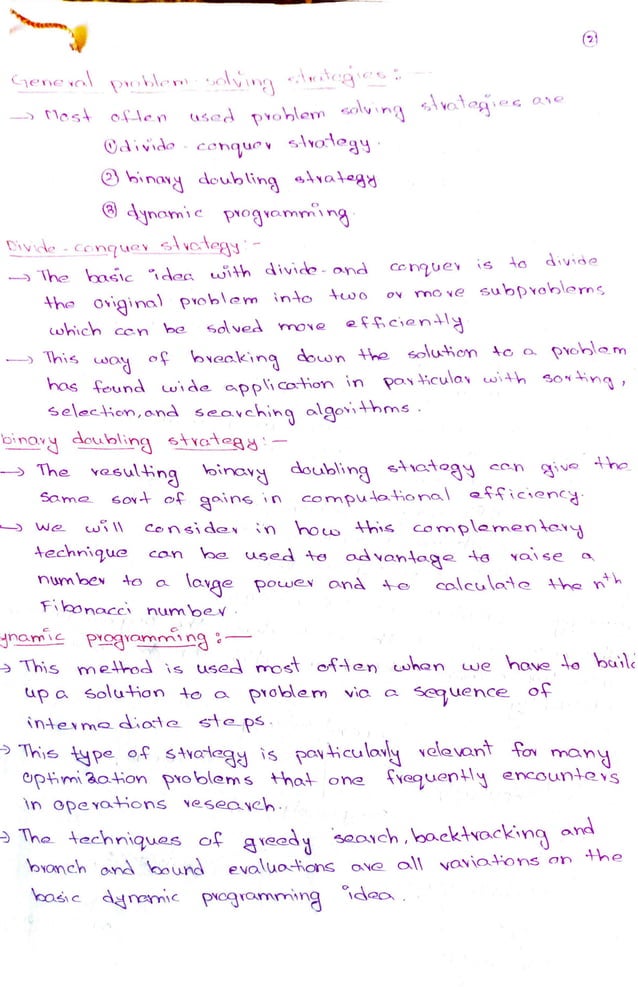 ②
General problem solving strategies :-
→ Most often used problem solving strategies are
① divide - conquer strategy.
② binary doubling strategy
③ dynamic programming.
Divide - conquer strategy :-
→ The basic idea with divide-and conquer is to divide
the original problem into two or more subproblems
which can be solved more efficiently.
→ This way of breaking down the solution to a problem
has found wide application in particular with sorting,
selection, and searching algorithms.
binary doubling strategy :-
→ The resulting binary doubling strategy can give the
same sort of gains in computational efficiency.
→ we will consider in how this complementary
technique can be used to advantage to raise a
number to a large power and to calculate the nth
Fibonacci number.
ynamic programming :-
→ This method is used most often when we have to build
up a solution to a problem via a sequence of
intermediate steps.
→ This type of strategy is particularly relevant for many
optimization problems that one frequently encounters
in operations research.
→ The techniques of greedy search, backtracking and
branch and bound evaluations are all variations on the
basic dynamic programming idea.